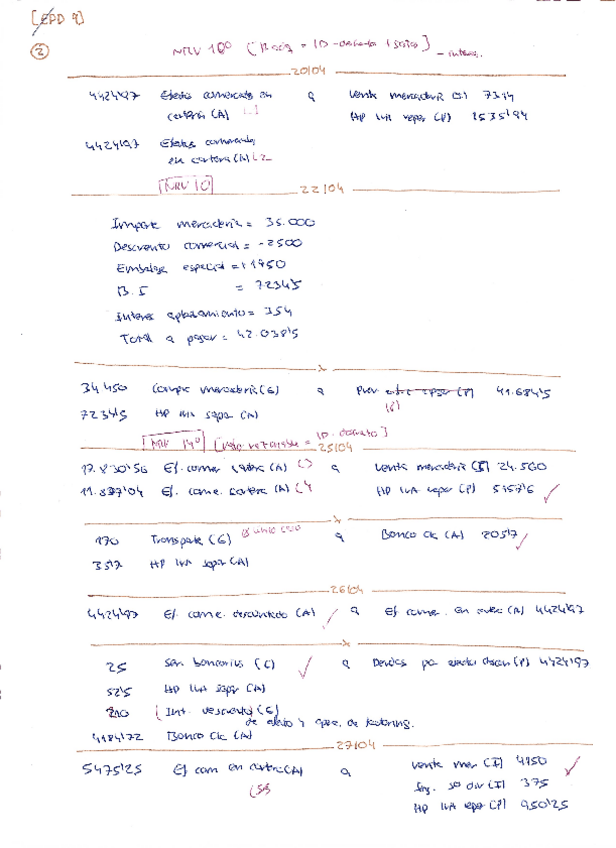 [EPD 9]
②
NRV 18º
20/04
4424'97 Efectos comerciales en a Venta mercaderia (I) 7314
cartera (A) HP IVA reper (P) 1535'94
4424'97 Efectos comerciales
en cartera (A)
NRV 10
22/04
Importe mercaderia = 35.000
Descuento comercial = -2500
Embalaje especial = +1950
B.I = 7234'5
Interes aplazamiento = 354
Total a pagar = 42.038'5
34450 Compra mercaderia (G) a Prov (P) 41.684'5
7234'5 HP IVA sopor (A)
NRV 14º
25/04
17.830'56 Ef. comer cartera (A) a Venta mercaderia (I) 24.560
11.887'04 Ef. come. cartera (A) HP IVA reper (P) 5157'6
170 Transporte (G) a Banco c/c (A) 205'7
35'7 HP IVA sopor (A)
26/04
4424'97 Ef. come. descontado (A) a Ef come. en cartera (A) 4424'97
25 Serv bancarios (G) a Deudas por efectos descon (P) 4424'97
5'25 HP IVA sopor (A)
210 Int. descuento (G)
de efecto y oper. de factoring.
4184'72 Banco c/c (A)
27/04
5475'25 Ef com en cartera (A) a Venta mer (I) 4150
375
HP IVA reper (P) 950'25